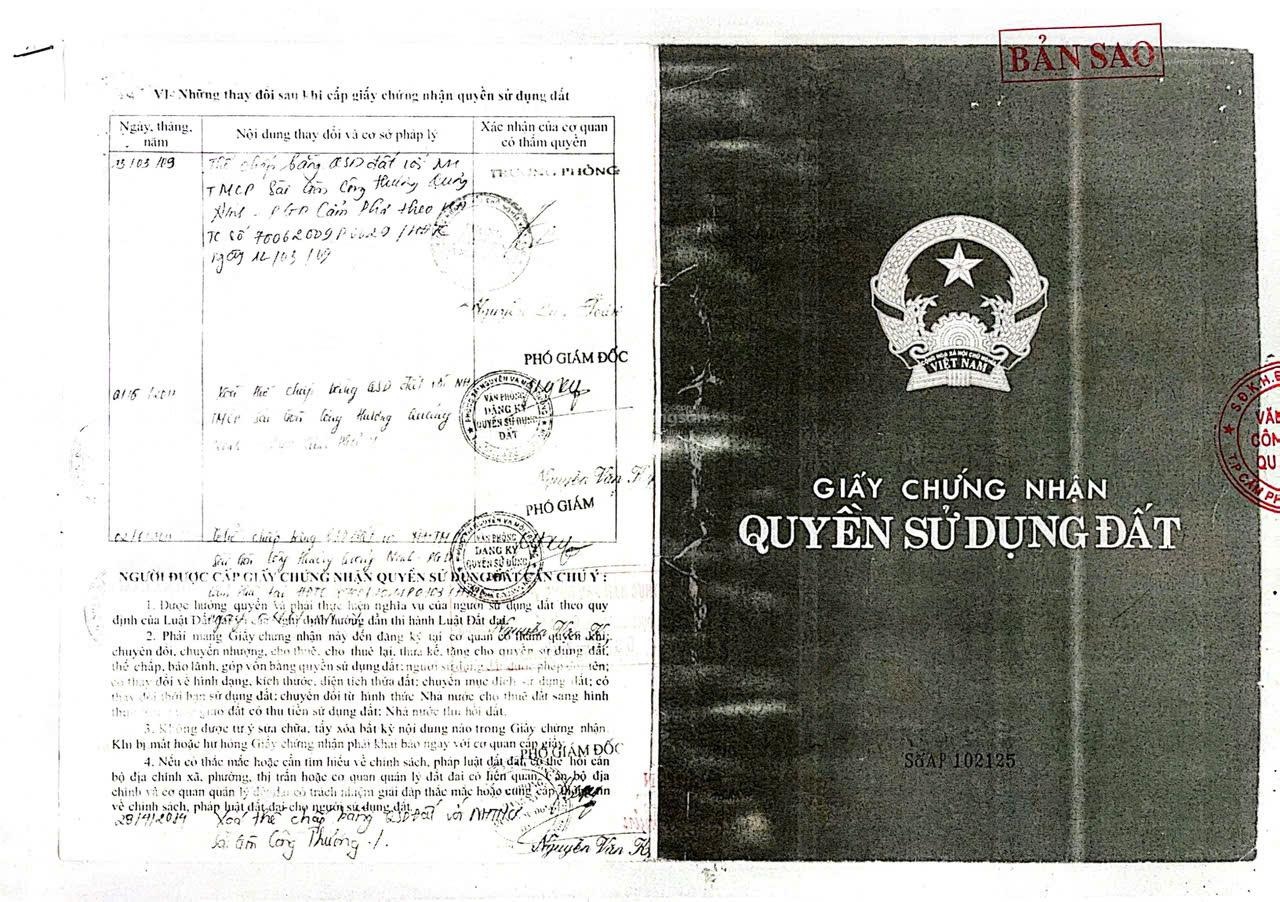 VI- Những thay đổi sau khi cấp giấy chứng nhận quyền sử dụng đất
Ngày, tháng, năm
Nội dung thay đổi và cơ sở pháp lý
Xác nhận của cơ quan có thẩm quyền
13/03/09
Thế chấp bằng QSD đất với NH
TMCP Sài Gòn Công Thương Quảng
Ninh - PGD Cẩm Phả theo
TC số
ngày 12/03/09
TRƯỞNG PHÒNG
Nguyễn
PHÓ GIÁM ĐỐC
Xoá thế chấp bằng QSD đất với NH
TMCP Sài Gòn Công Thương Quảng
VĂN PHÒNG
ĐĂNG KÝ
QUYỀN SỬ DỤNG
ĐẤT
Nguyễn Văn
PHÓ GIÁM
Thế chấp bằng QSD đất
Sài Gòn Công Thương Quảng Ninh PGD
VĂN PHÒNG
ĐĂNG KÝ
QUYỀN SỬ DỤNG
NGƯỜI ĐƯỢC CẤP GIẤY CHỨNG NHẬN QUYỀN SỬ DỤNG ĐẤT CẦN CHÚ Ý :
1. Được hưởng quyền và phải thực hiện nghĩa vụ của người sử dụng đất theo quy
định của Luật Đất đai và các Nghị định hướng dẫn thi hành Luật Đất đai.
Nguyễn
2. Phải mang Giấy chứng nhận này đến đăng ký tại cơ quan có thẩm quyền khi:
chuyển đổi, chuyển nhượng, cho thuê, cho thuê lại, thừa kế, tặng cho quyền sử dụng đất;
thế chấp, bảo lãnh, góp vốn bằng quyền sử dụng đất; người sử dụng đất được phép đổi tên;
có thay đổi về hình dạng, kích thước, diện tích thửa đất; chuyển mục đích sử dụng đất; có
thay đổi thời hạn sử dụng đất; chuyển đổi từ hình thức Nhà nước cho thuê đất sang hình
thức giao đất có thu tiền sử dụng đất; Nhà nước thu hồi đất.
3. Không được tự ý sửa chữa, tẩy xóa bất kỳ nội dung nào trong Giấy chứng nhận.
Khi bị mất hoặc hư hỏng Giấy chứng nhận phải khai báo ngay với cơ quan cấp giấy.
PHÓ GIÁM ĐỐC
4. Nếu có thắc mắc hoặc cần tìm hiểu về chính sách, pháp luật đất đai, có thể hỏi cán
bộ địa chính xã, phường, thị trấn hoặc cơ quan quản lý đất đai có liên quan. Cán bộ địa
chính và cơ quan quản lý đất đai có trách nhiệm giải đáp thắc mắc hoặc cung cấp thông tin
về chính sách, pháp luật đất đai cho người sử dụng đất.
Xoá thế chấp bằng QSD đất với NHTMCP
Sài Gòn Công Thương ./.
Nguyễn Văn
BẢN SAO
CỘNG HÒA XÃ HỘI CHỦ NGHĨA
VIỆT NAM
GIẤY CHỨNG NHẬN
QUYỀN SỬ DỤNG ĐẤT
Số AP 102125